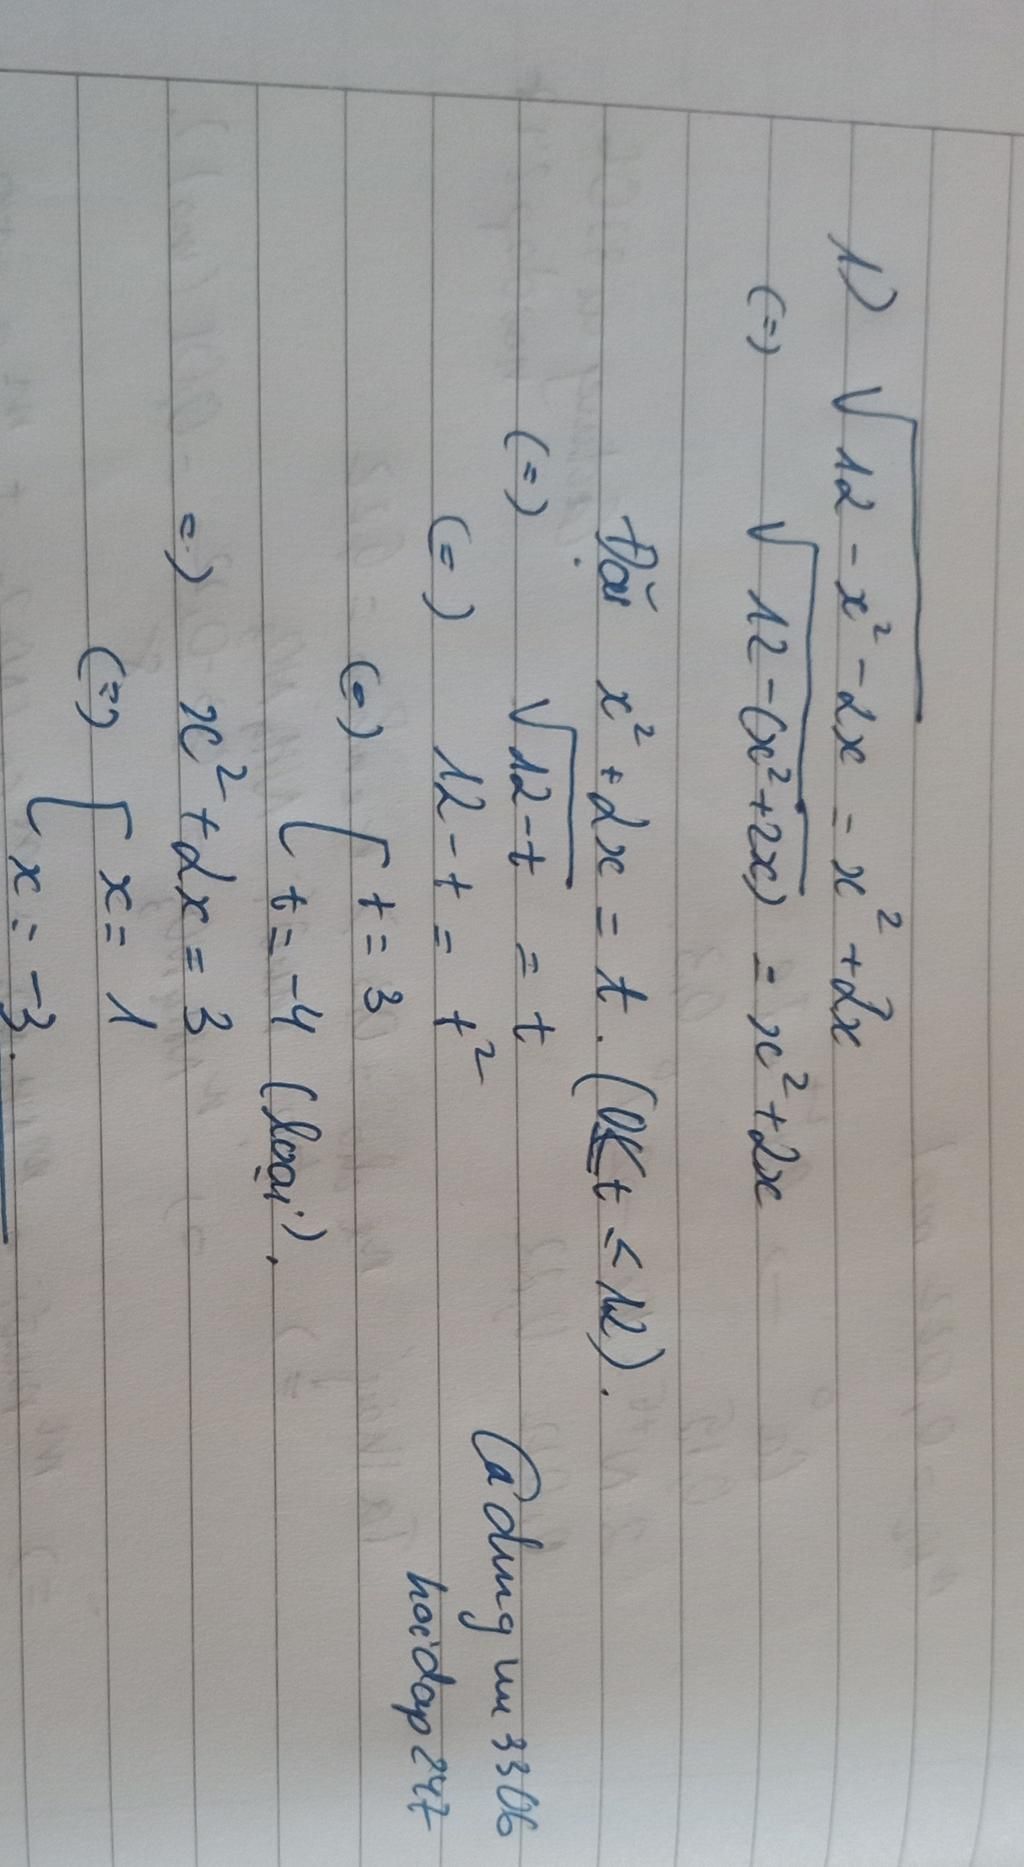 1) √(12 - x² - 2x) = x² + 2x
(=) √(12 - (x² + 2x)) = x² + 2x
Đặt x² + 2x = t. (0 ≤ t ≤ 12).
(=) √(12 - t) = t
(=) 12 - t = t²
(=) [ t = 3
t = -4 (loại).
=) x² + 2x = 3
(=) [ x = 1
x = -3.
hoidap247